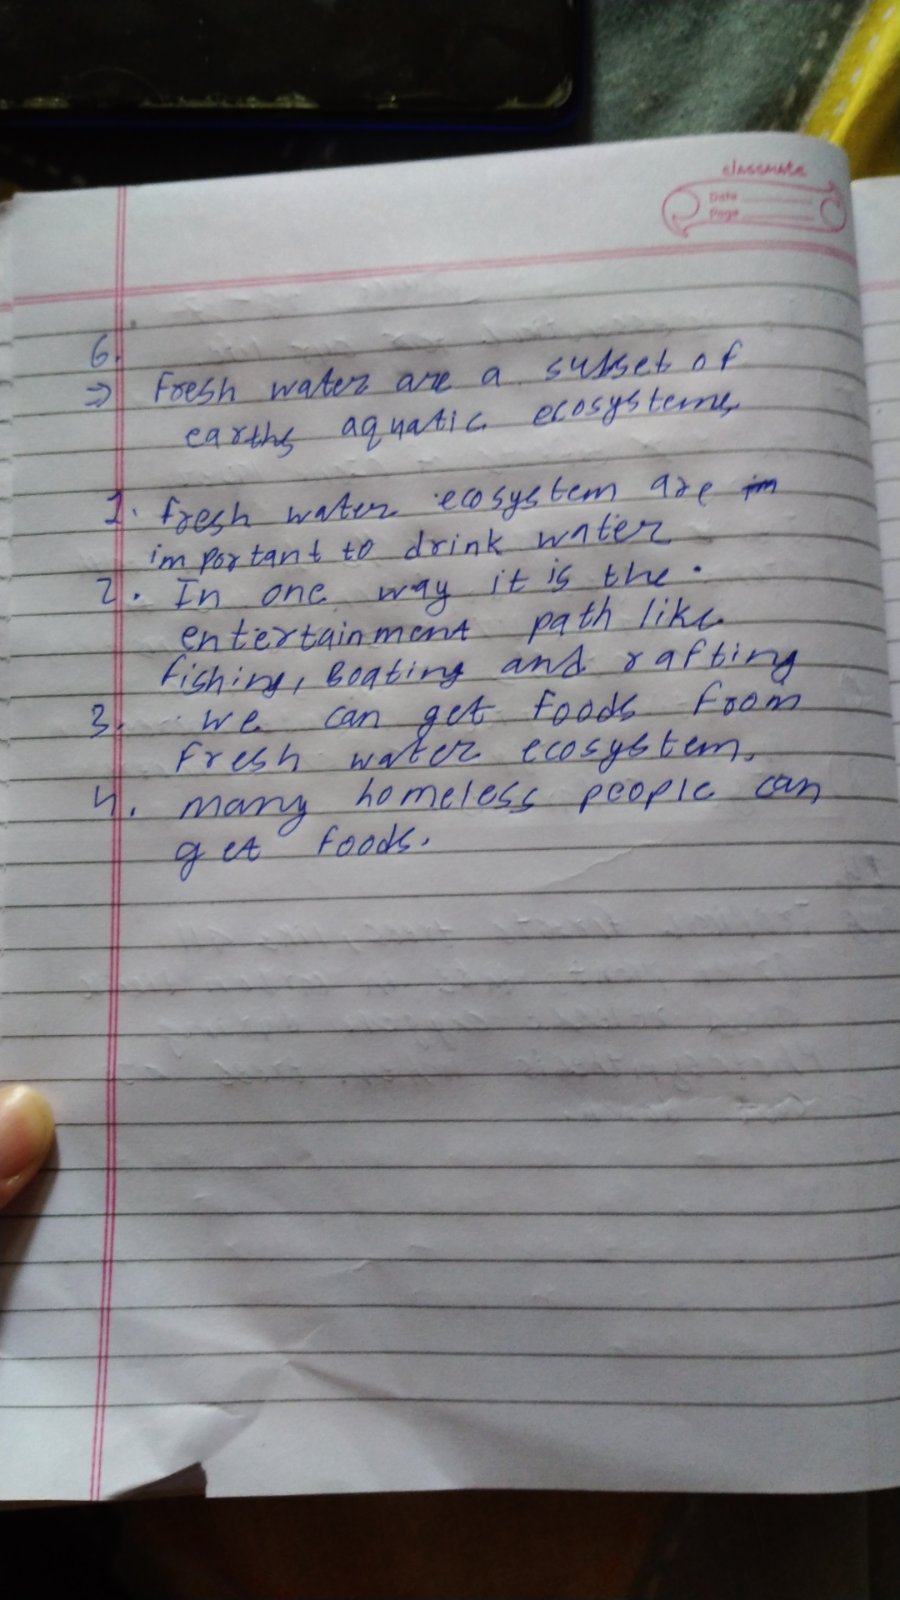 classmate
Date
Page
6.
⇒ Fresh water are a subset of
earths aquatic ecosystems
1. fresh water ecosystem are im
important to drink water
2. In one way it is the
entertainment path like
fishing, Boating and rafting
3. we can get foods from
fresh water ecosystem.
4. many homeless people can
get foods.